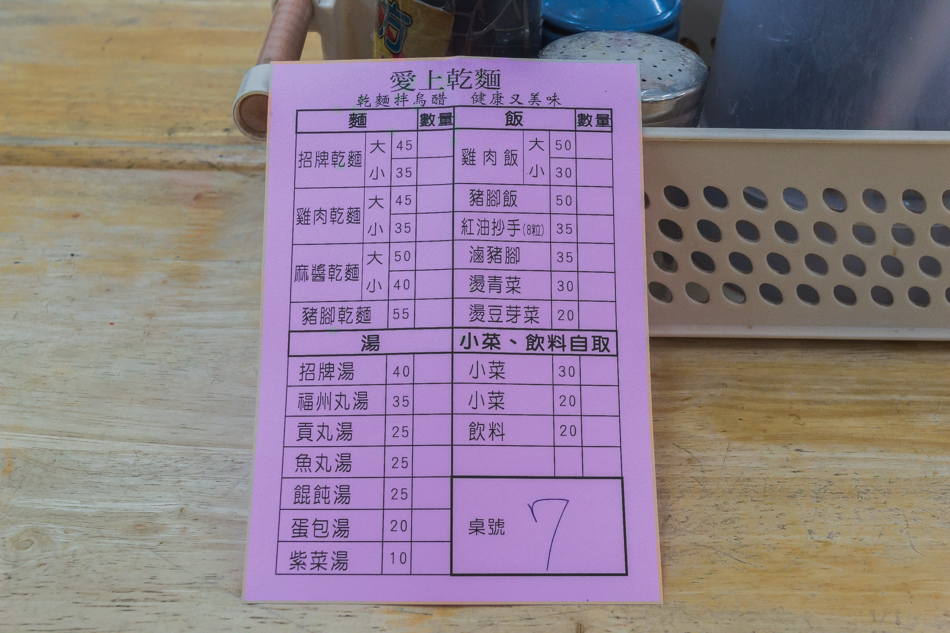 愛上乾麵
乾麵拌烏醋 健康又美味
麵 數量 飯 數量
招牌乾麵 大 45 雞肉飯 大 50
小 35 小 30
雞肉乾麵 大 45 豬腳飯 50
小 35 紅油抄手(8粒) 35
麻醬乾麵 大 50 滷豬腳 35
小 40 燙青菜 30
豬腳乾麵 55 燙豆芽菜 20
湯 小菜、飲料自取
招牌湯 40 小菜 30
福州丸湯 35 小菜 20
貢丸湯 25 飲料 20
魚丸湯 25
餛飩湯 25
蛋包湯 20 桌號 7
紫菜湯 10